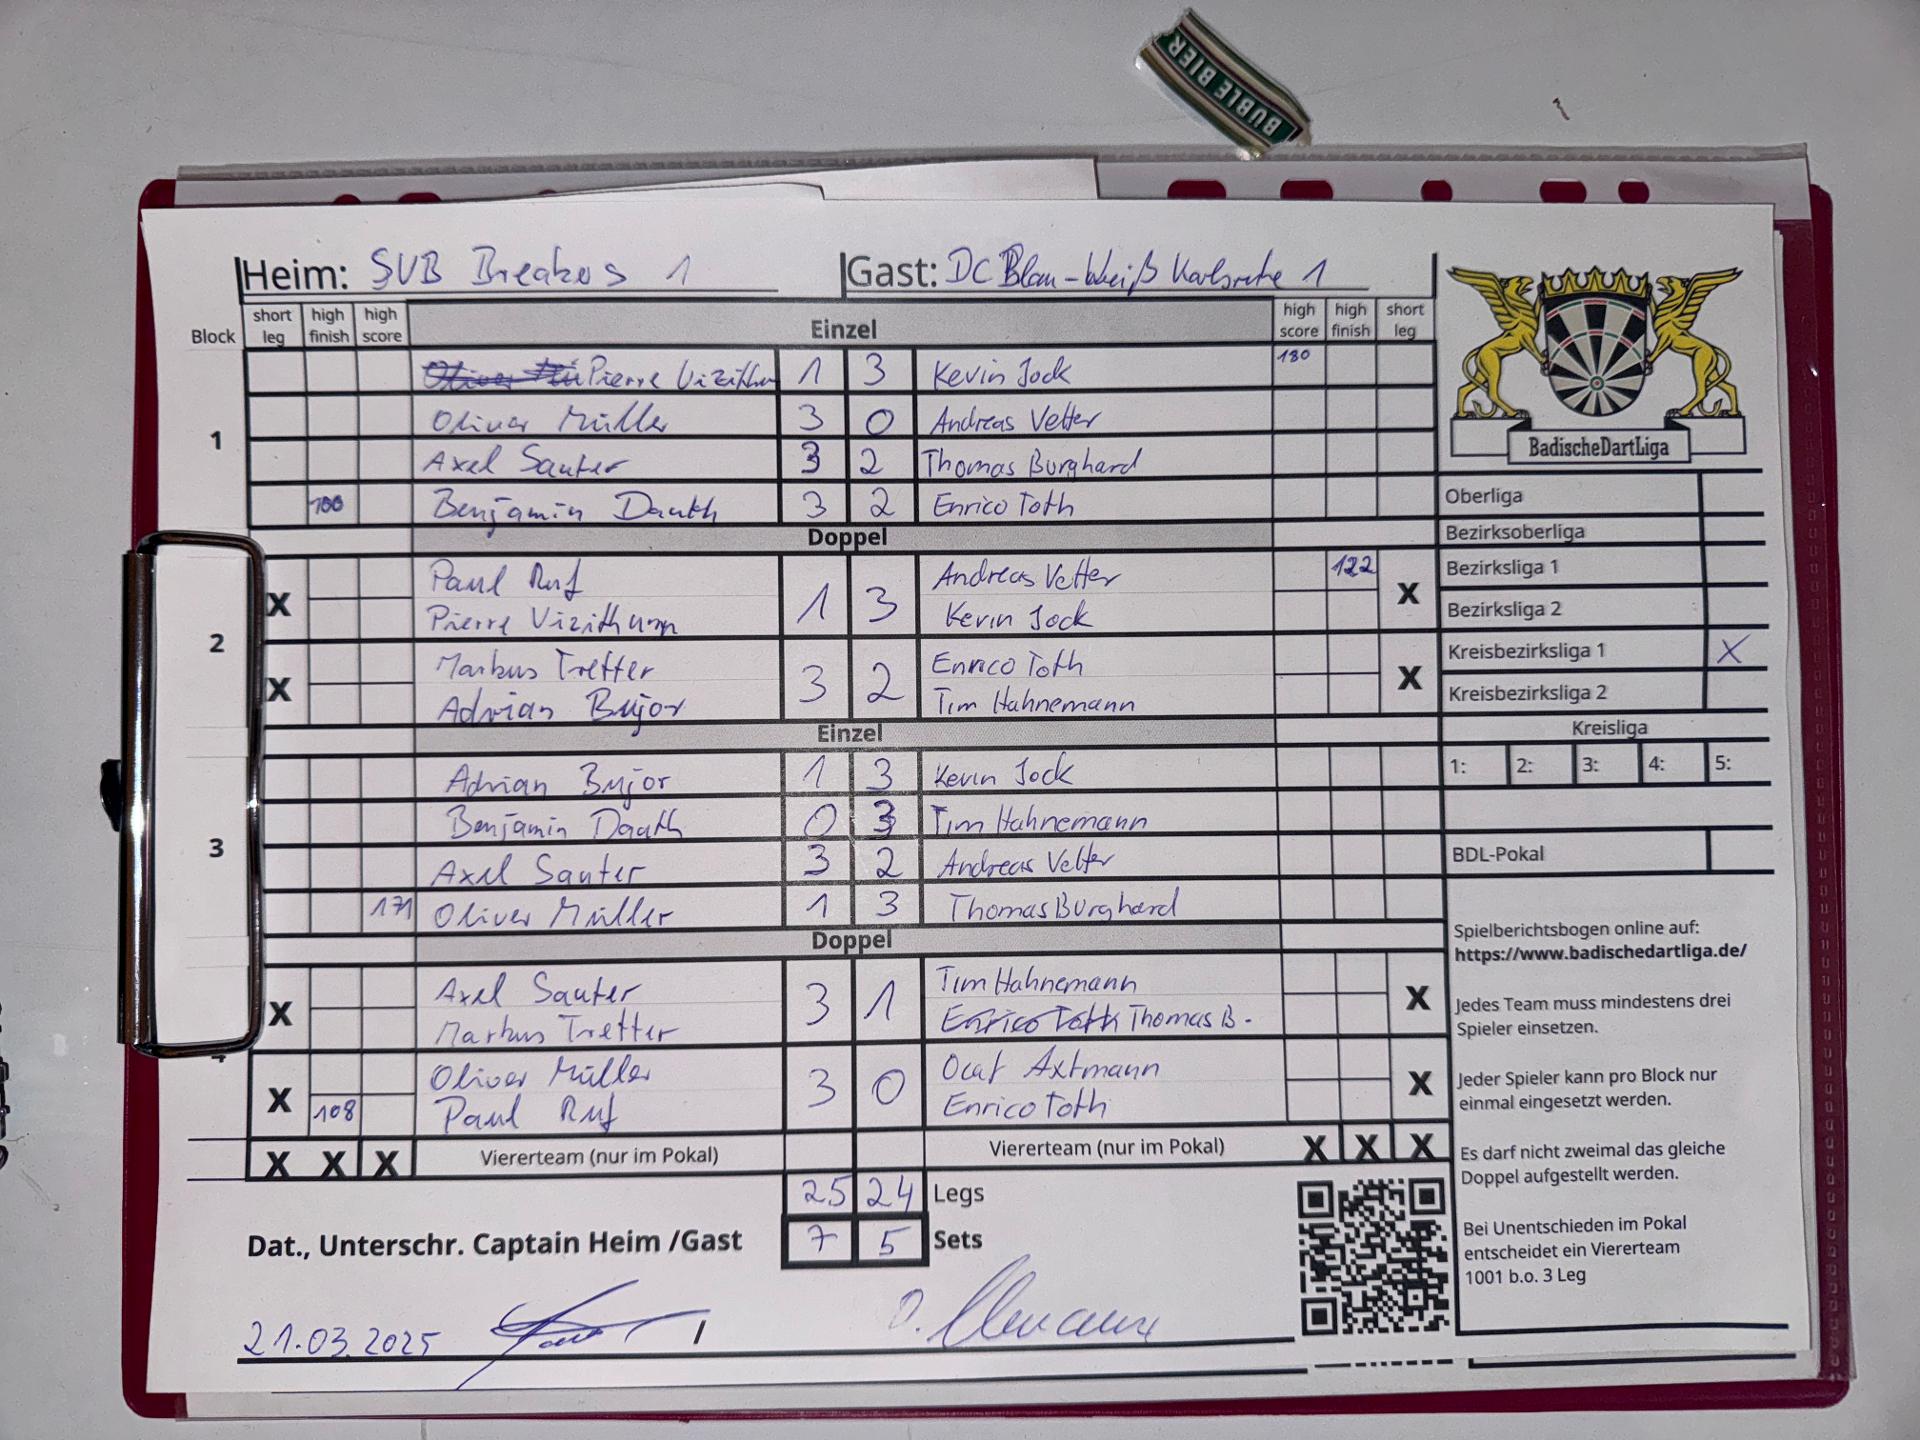 BÜBLE BIER
Heim: SVB Breakers 1 Gast: DC Blau-Weiß Karlsruhe 1
Block short leg high finish high score Einzel high score high finish short leg
Pierre Vizithum 1 3 Kevin Jock 180
1 Oliver Müller 3 0 Andreas Vetter
Axel Sauter 3 2 Thomas Burghard
100 Benjamin Dauth 3 2 Enrico Toth
Doppel
2
X Paul Ruf 1 3 Andreas Vetter 122 X
Pierre Vizithum Kevin Jock
X Markus Tretter 3 2 Enrico Toth X
Adrian Bujor Tim Hahnemann
Einzel
3
Adrian Bujor 1 3 Kevin Jock
Benjamin Dauth 0 3 Tim Hahnemann
Axel Sauter 3 2 Andreas Vetter
171 Oliver Müller 1 3 Thomas Burghard
Doppel
X Axel Sauter 3 1 Tim Hahnemann X
Markus Tretter Enrico Toth Thomas B.
X Oliver Müller 3 0 Axtmann X
108 Paul Ruf Enrico Toth
X X X Viererteam (nur im Pokal) Viererteam (nur im Pokal) X X X
25 24 Legs
7 5 Sets
Dat., Unterschr. Captain Heim /Gast
21.03.2025 /
BadischeDartLiga
Oberliga
Bezirksoberliga
Bezirksliga 1
Bezirksliga 2
Kreisbezirksliga 1 X
Kreisbezirksliga 2
Kreisliga
1: 2: 3: 4: 5:
BDL-Pokal
Spielberichtsbogen online auf:
https://www.badischedartliga.de/
Jedes Team muss mindestens drei
Spieler einsetzen.
Jeder Spieler kann pro Block nur
einmal eingesetzt werden.
Es darf nicht zweimal das gleiche
Doppel aufgestellt werden.
Bei Unentschieden im Pokal
entscheidet ein Viererteam
1001 b.o. 3 Leg